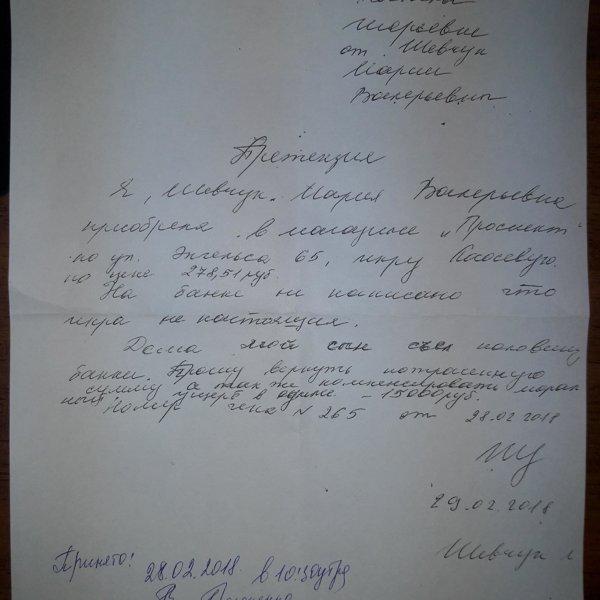 от Шевчук
Марии
Валерьевны
Претензия
Я, Шевчук Мария Валерьевна
приобрела в магазине "Проспект"
по ул. Энгельса 65, икру Лососевую.
по цене 278,51 руб.
На банке не написано что
икра не настоящая.
Дома мой сын съел половину
банки. Прошу вернуть потраченную
сумму а так же компенсировать морал
ный ущерб в одине - 15000 руб.
Номер чека N 265 от 28.02 2018
29.02.2018
Шевчук
Принято:
28.02.2018. в 10:30 утра